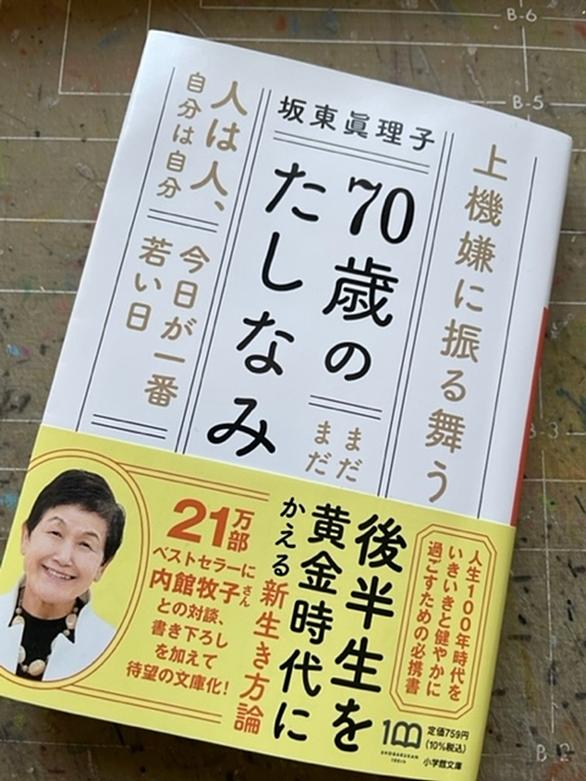 坂東眞理子
70歳の
たしなみ
上機嫌に振る舞う
人は人、
自分は自分
今日が一番
若い日
まだ
まだ
人生100年時代を
いきいきと健やかに
過ごすための必携書
後半生を
黄金時代に
かえる新生き方論
21万部
ベストセラーに
内館牧子さん
との対談、
書き下ろし
を加えて
待望の文庫化!
100
SHOGAKUKAN
定価759円
(10%税込)
小学館文庫
B-6
B-5
B-3
B-2